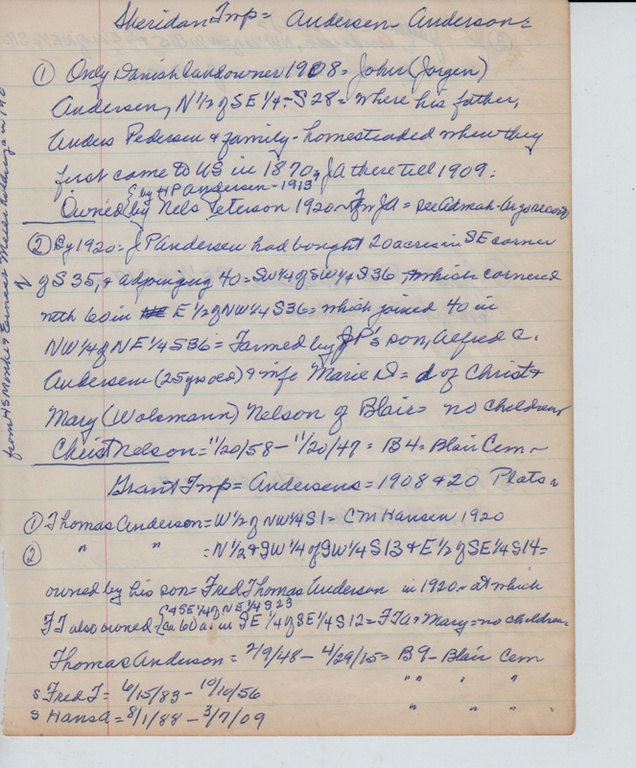 Sheridan Twp = Andersen - Anderson =
① Only Danish landowner 1908 = John (Jorgen)
Andersen, N 1/2 of SE 1/4 - S 28 = where his father,
Anders Pedersen & family - homesteaded when they
first came to US in 1870, JA there till 1909.
{by HP Andersen - 1913
Owned by Nels Peterson 1920 = see
② By 1920 = JP Andersen had bought 20 acres in SE corner
of S 35, & adjoining 40 = SW 1/4 of SW 1/4 S 36 which cornered
with 60 in E 1/2 of NW 1/4 S 36 = which joined 40 in
NW 1/4 of NE 1/4 S 36 = Farmed by JP's son, Alfred C.
Andersen (25 yrs old) & wife Marie D = d of Christ &
Mary (Wolsmann) Nelson of Blair = no children
Christ Nelson = 11/20/58 - 11/20/47 = B4 = Blair Cem -
Grant Twp = Andersens = 1908 & 20 Plats =
① Thomas Anderson = W 1/2 of NW 1/4 S 1 = CM Hansen 1920
② " " = N 1/2 & SW 1/4 of SW 1/4 S 13 & E 1/2 of SE 1/4 S 14 =
owned by his son = Fred Thomas Anderson in 1920 - at which
{& SE 1/4 of NE 1/4 S 23
FT also owned {ca 60 a. in SE 1/4 of SE 1/4 S 12 = FTA & Mary = no children
Thomas Anderson = 2/9/48 - 4/29/15 = B9 - Blair Cem
s Fred T = 6/15/83 - 10/10/56 " " " "
s Hans A = 8/1/88 - 3/7/09 " " "
from HS Monke &